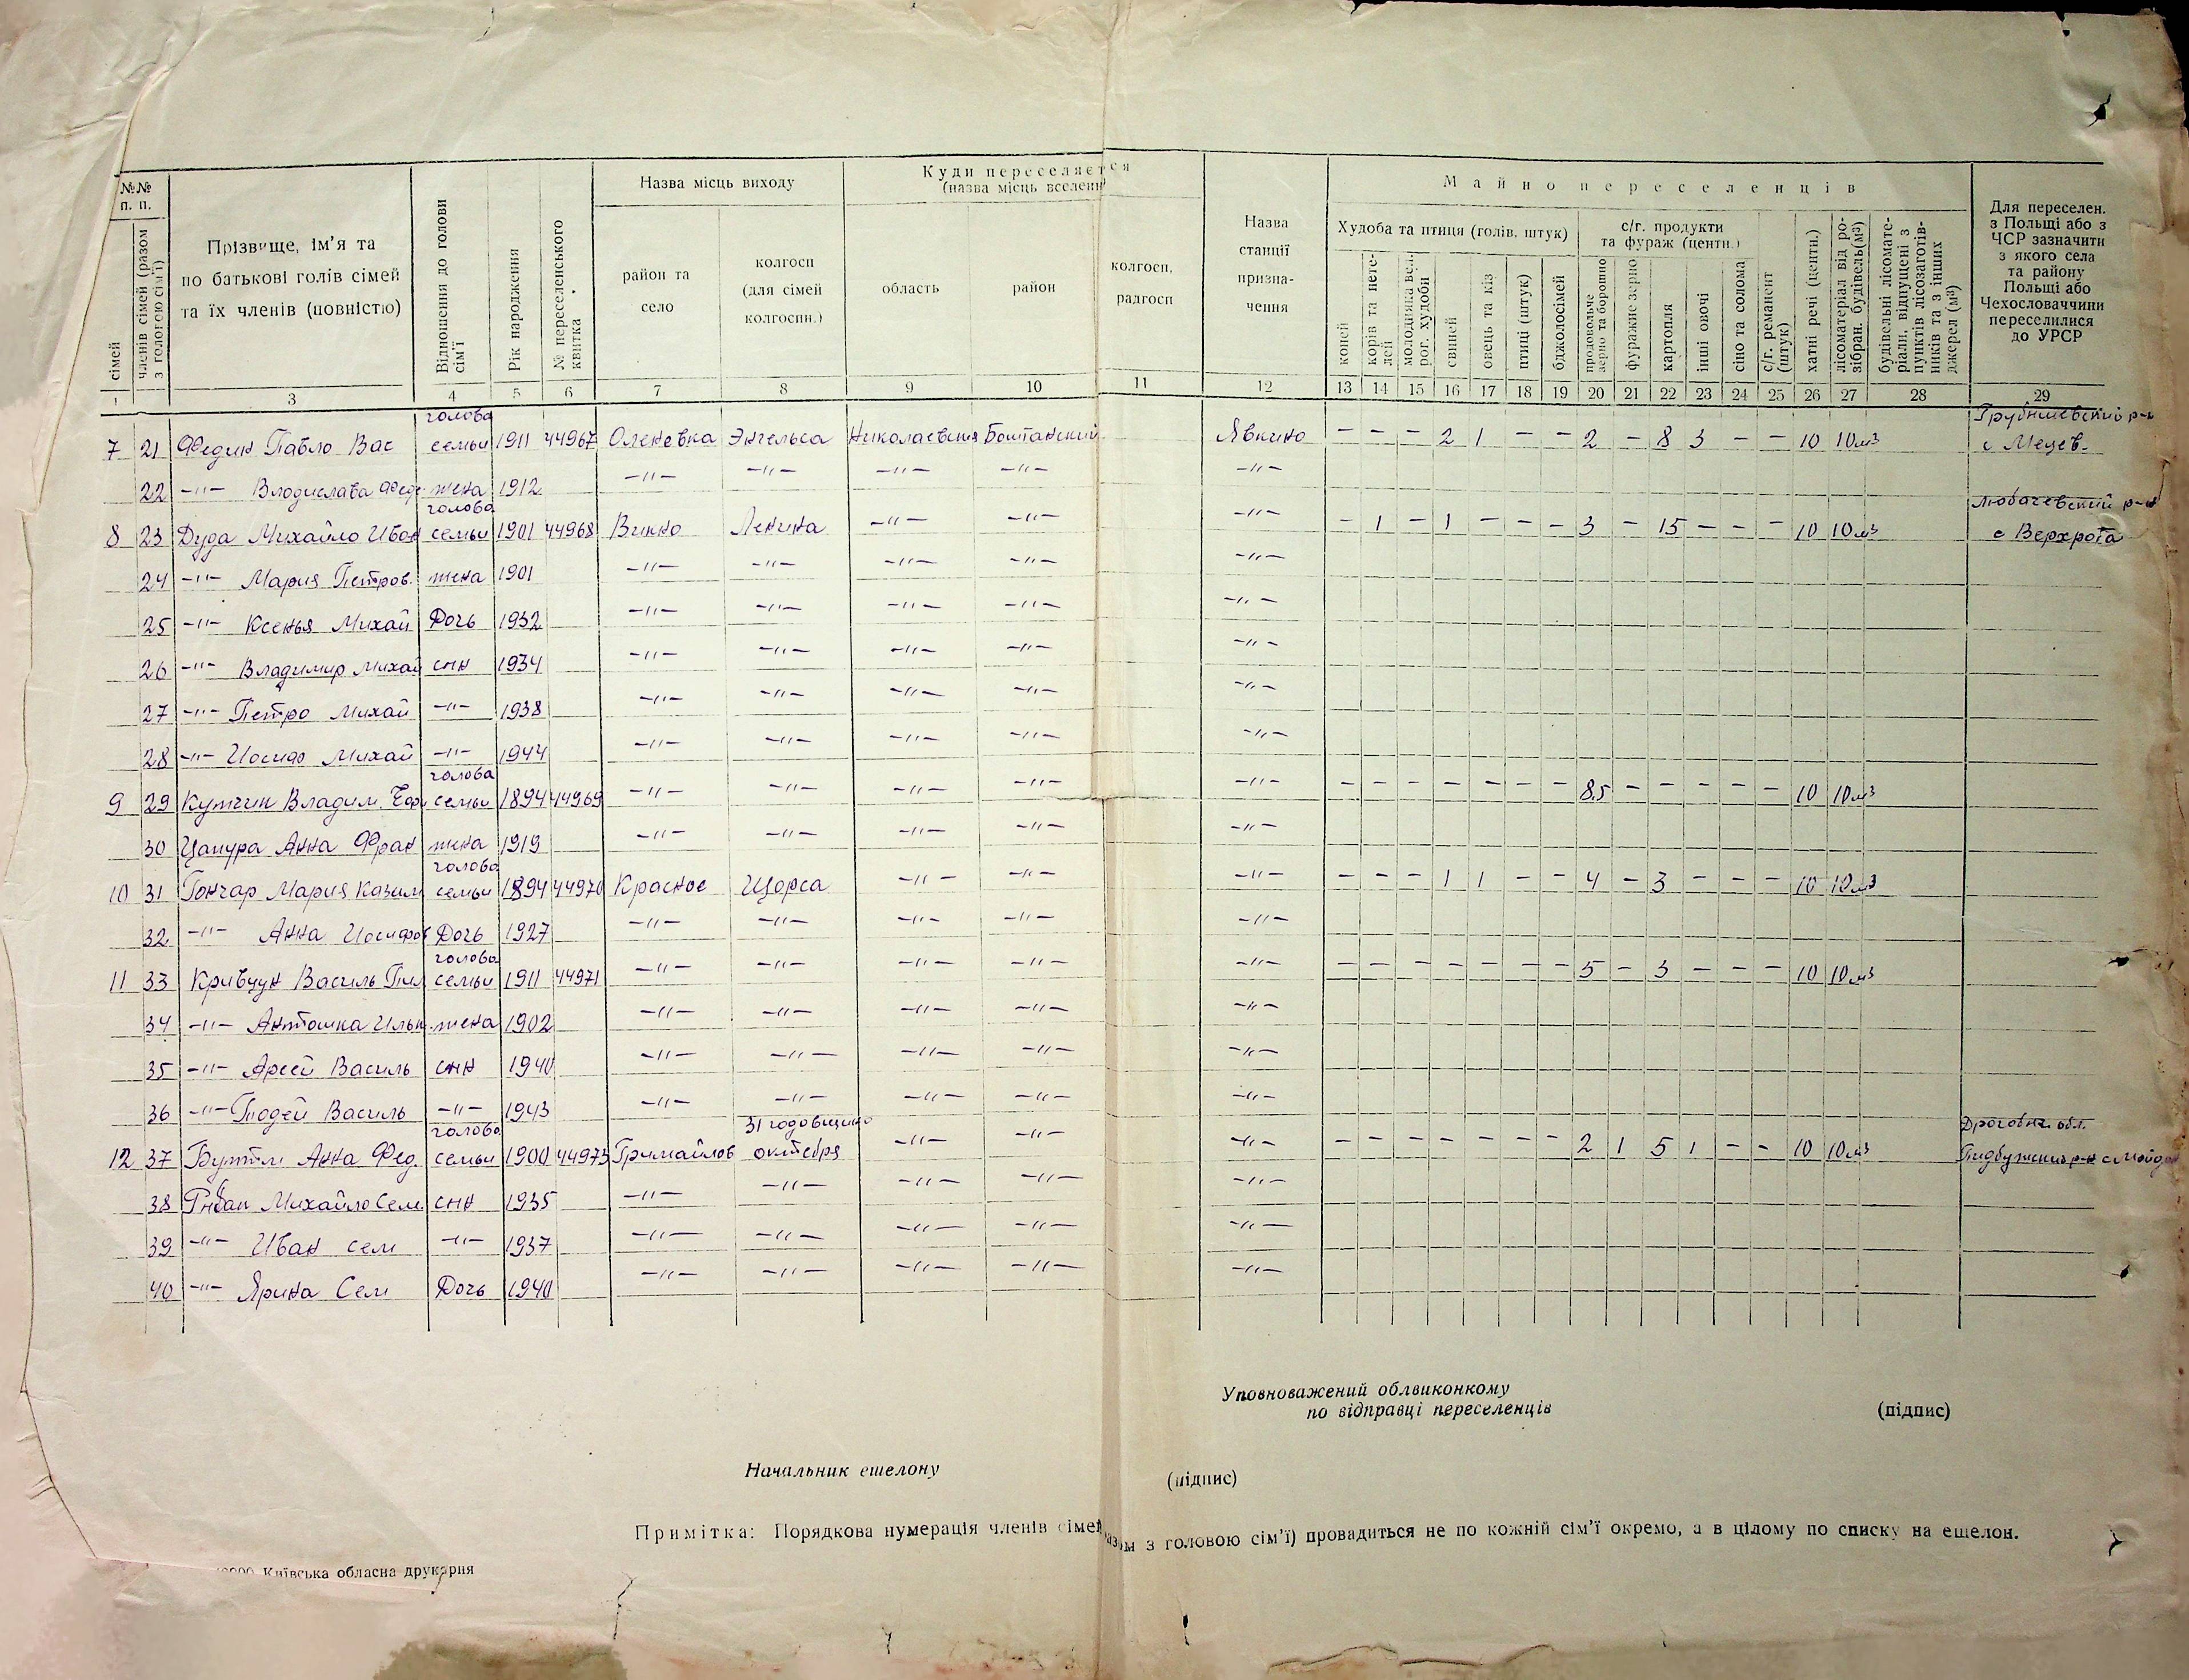 №№ п. п.
сімей
членів сімей (разом з головою сім'ї)
Прізвище, ім'я та
по батькові голів сімей
та їх членів (повністю)
Відношення до голови сім'ї
Рік народження
№ переселенського квитка
Назва місць виходу
район та
село
колгосп
(для сімей
колгоспн.)
Куди переселяється
(назва місць вселенн
область
район
колгосп,
радгосп
Назва
станції
призна-
чення
Майно переселенців
Худоба та птиця (голів, штук)
коней
корів та нете-
лей
молодняка вел.
рог. худоби
свиней
овець та кіз
птиці (штук)
бджолосімей
с/г. продукти
та фураж (центн.)
продовольче
зерно та борошно
фуражне зерно
картопля
інші овочі
сіно та солома
с/г. реманент
(штук)
хатні речі (центн.)
лісоматеріал від ро-
зібран. будівель(м³)
будівельні лісомате-
ріали, відпущені з
пунктів лісозаготів-
ників та з інших
джерел (м³)
Для переселен.
з Польщі або з
ЧСР зазначити
з якого села
та району
Польщі або
Чехословаччини
переселилися
до УРСР
1 3 4 5 6 7 8 9 10 11 12 13 14 15 16 17 18 19 20 21 22 23 24 25 26 27 28 29
голова Грубишевский р-н
7 21 Федин Павло Вас семьи 1911 44967 Оленевка Энгельса Николаевския Боштанский Явкино – – – 2 1 – – 2 – 8 3 – – 10 10м³ с
22 –"– Владислава Феде жена 1912 –"– –"– –"– –"– –"–
голова Любачевский р-н
8 23 Дуда Михайло Иван семьи 1901 44968 Викно Ленина –"– –"– –"– – 1 – 1 – – – 3 – 15 – – – 10 10м³ с Верхрата
24 –"– Мария Петров. жена 1901 –"– –"– –"– –"– –"–
25 –"– Ксенья Михай Дочь 1932 –"– –"– –"– –"– –"–
26 –"– Владимир Михай сын 1934 –"– –"– –"– –"– –"–
27 –"– Петро Михай –"– 1938 –"– –"– –"– –"– –"–
28 –"– Иосиф Михай –"– 1944 –"– –"– –"– –"– –"–
голова
9 29 Кутчин Владим. Еф семьи 1894 44969 –"– –"– –"– –"– –"– – – – – – – – 8.5 – – – – – 10 10м³
30 Цапура Анна Фран жена 1919 –"– –"– –"– –"– –"–
голова
10 31 Гончар Мария Казим семьи 1894 44970 Красное Щорса –"– –"– –"– – – – 1 1 – – 4 – 3 – – – 10 10м³
32 –"– Анна Иосифов Дочь 1927 –"– –"– –"– –"– –"–
голова
11 33 Кривцун Василь семьи 1911 44971 –"– –"– –"– –"– –"– – – – – – – – 5 – 3 – – – 10 10м³
34 –"– Антошка Ильк. жена 1902 –"– –"– –"– –"– –"–
35 –"– Арсей Василь сын 1940 –"– –"– –"– –"– –"–
36 –"– Василь –"– 1943 –"– –"– –"– –"– –"–
голова 31 годовщина Дрогобыч. обл.
12 37 Анна Фед. семьи 1900 44973 Гримайлов октября –"– –"– –"– – – – – – – – 2 1 5 1 – – 10 10м³ Пидбужский р-н с Майдан
38 Михайло Сем сын 1935 –"– –"– –"– –"– –"–
39 –"– Иван Сем –"– 1937 –"– –"– –"– –"– –"–
40 –"– Ярина Сем Дочь 1940 –"– –"– –"– –"– –"–
Уповноважений облвиконкому
по відправці переселенців (підпис)
Начальник ешелону (підпис)
Примітка: Порядкова нумерація членів сімей разом з головою сім'ї) провадиться не по кожній сім'ї окремо, а в цілому по списку на ешелон.
Київська обласна друкарня